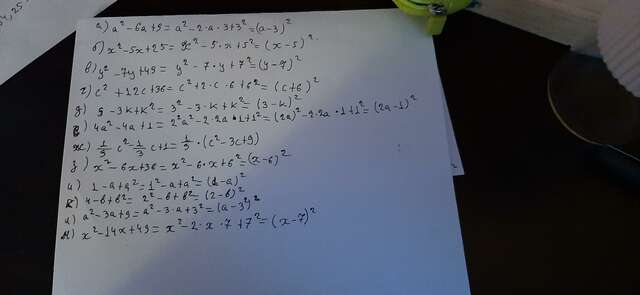 а) a² - 6a + 9 = a² - 2·a·3 + 3² = (a-3)²
б) x² - 5x + 25 = x² - 5·x + 5² = (x-5)²
в) y² - 7y + 49 = y² - 7·y + 7² = (y-7)²
г) c² + 12c + 36 = c² + 2·c·6 + 6² = (c+6)²
д) 9 - 3k + k² = 3² - 3·k + k² = (3-k)²
е) 4a² - 4a + 1 = 2²a² - 2·2a·1 + 1² = (2a)² - 2·2a·1 + 1² = (2a-1)²
ж) 1/9 c² - 1/3 c + 1 = 1/9 · (c² - 3c + 9)
з) x² - 6x + 36 = x² - 6·x + 6² = (x-6)²
и) 1 - a + a² = 1² - a + a² = (1-a)²
к) 4 - b + b² = 2² - b + b² = (2-b)²
л) a² - 3a + 9 = a² - 3·a + 3² = (a-3)²
м) x² - 14x + 49 = x² - 2·x·7 + 7² = (x-7)²